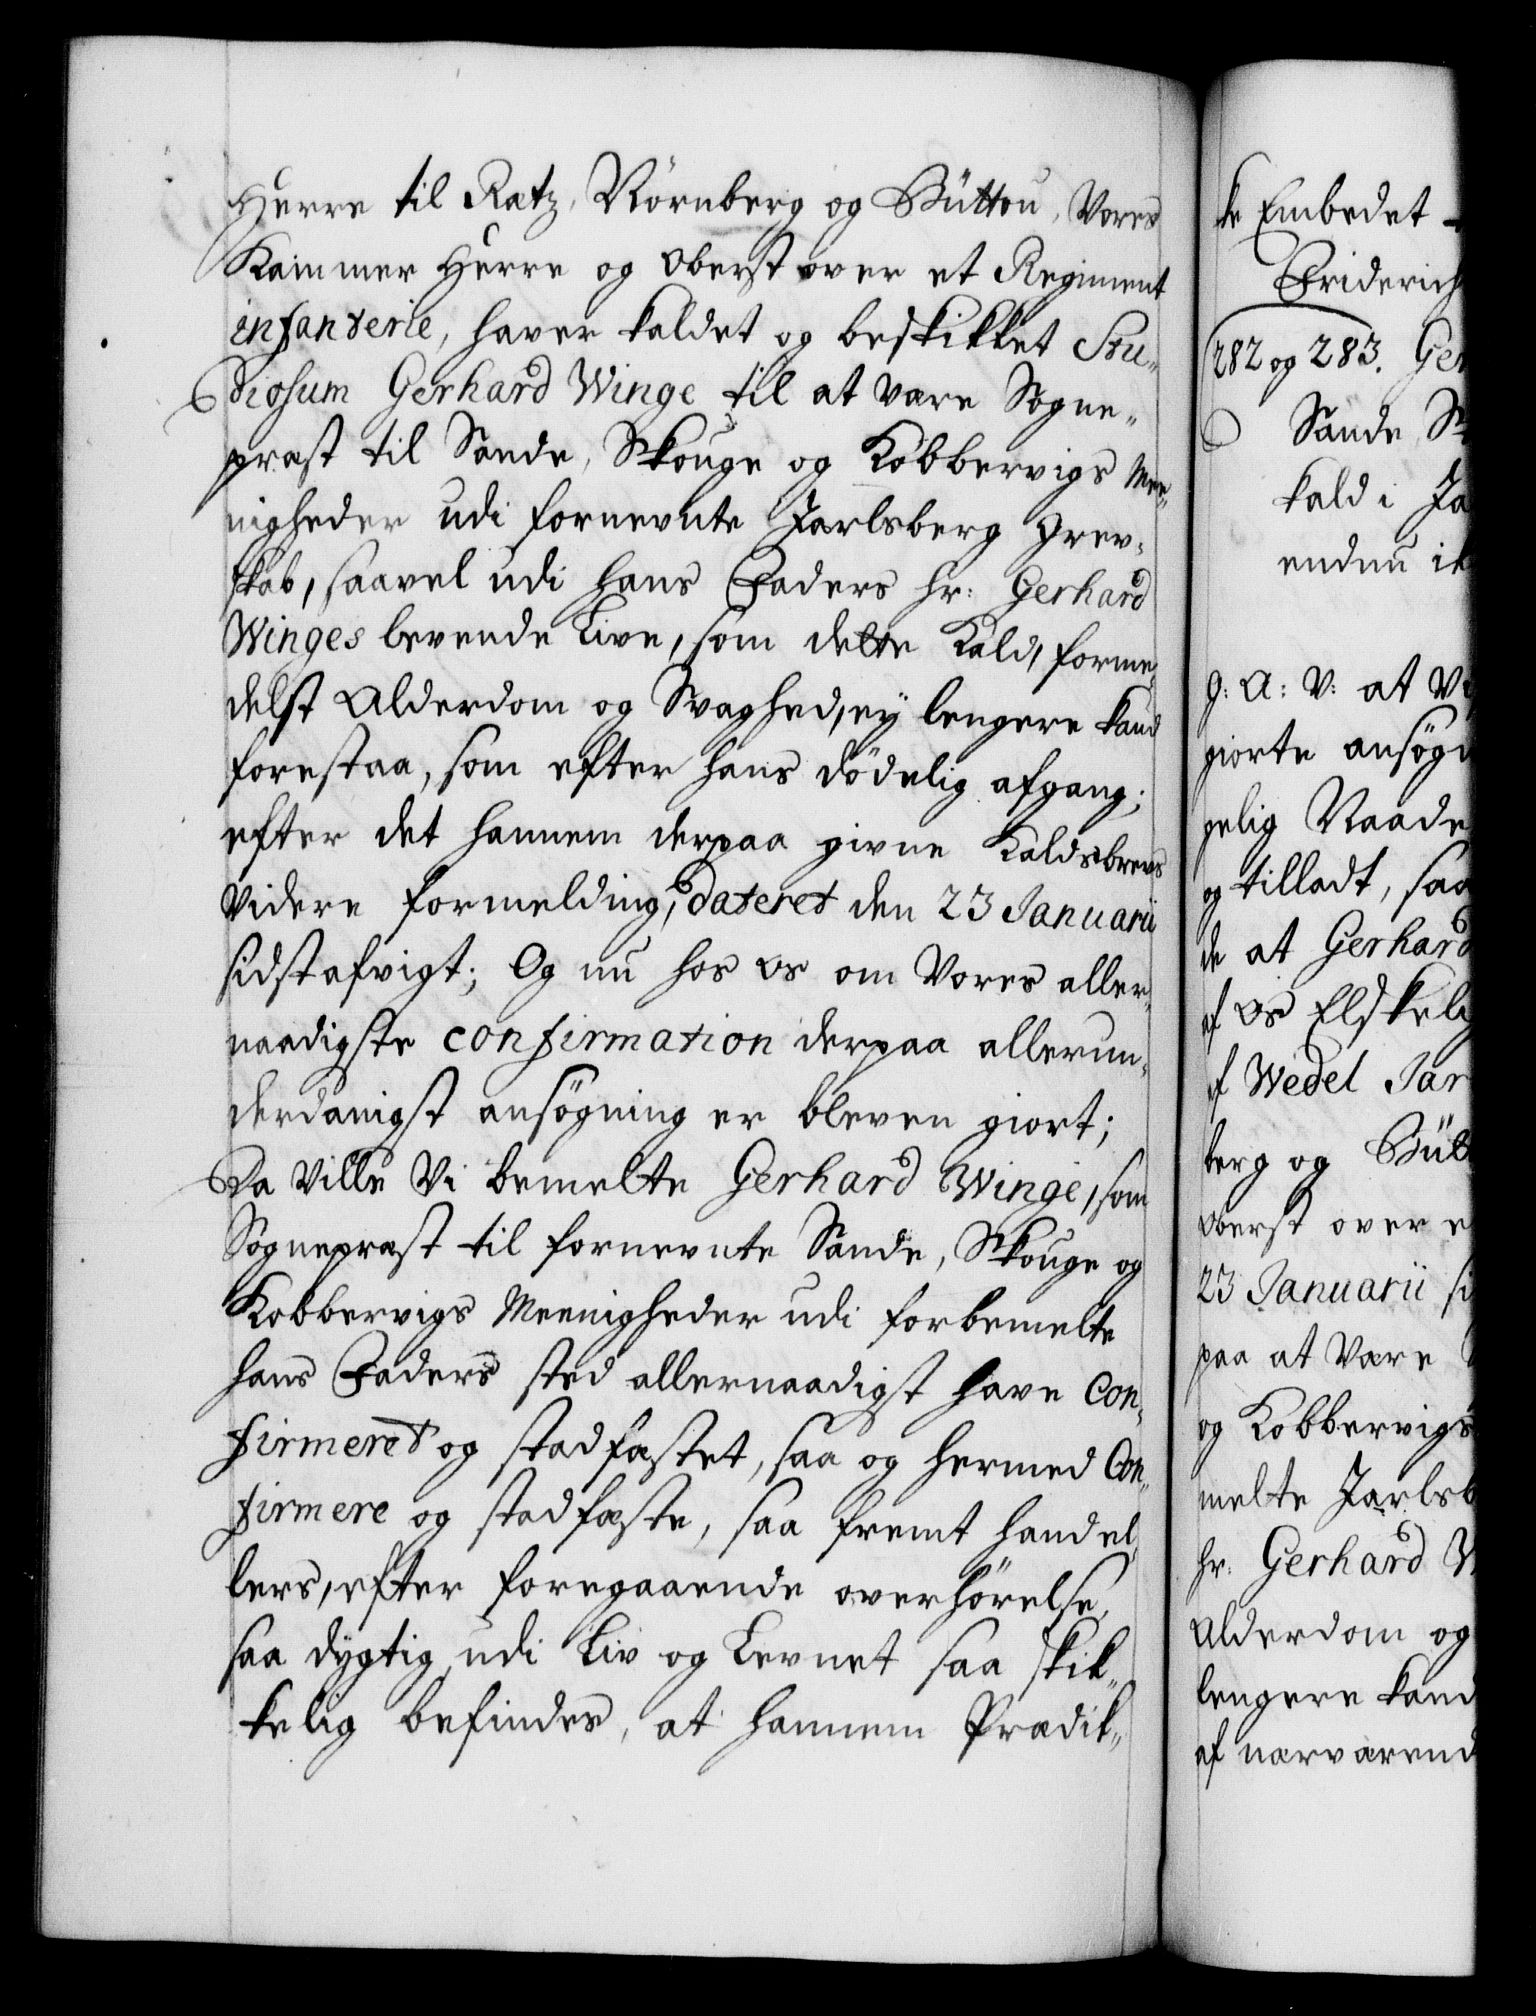 Herre til Ratz, Nörnberg og Büttou, Vores
Kammer Herre og Oberst over et Regiment
infanterie, haver kaldet og beskikket Stu-
diosum Gerhard Winge til at være Sogne-
præst til Sande, Skouge og Kobbervigs Mee-
nigheder udi fornevnte Jarlsberg Grev-
skab, saavel udi hans Faders hr: Gerhard
Winges levende Live, som dette Kald, forme-
delst Alderdom og Svaghed, ey lengere kand
forestaa, som efter hans dödelig afgang;
efter det hannem derpaa givne Kaldsbrevs
videre formelding, dateret den 23 Januarii
sidstafvigt; Og nu hos os om Vores aller-
naadigste confirmation derpaa allerun-
derdanigst ansögning er bleven giort;
Da ville Vi bemelte Gerhard Winge, som
Sognepræst til fornevnte Sande, Skouge og
Kobbervigs Meenigheder udi forbemelte
hans Faders sted allernaadigst have Con-
firmeret og stadfæstet, saa og hermed Con-
firmere og stadfæste, saa fremt hand el-
lers, efter foregaaende overhörelse,
saa dygtig, udi Liv og Levnet saa skik-
kelig befindes, at hannem Prædik-
ke Embedet
Friderich
282 og 283. Ger
Sande Sk
kald i Ja
endnu ik
g: A: V: at Vi
giorte ansögn
gelig Naade
og tilladt, saa
de at Gerhard
af os Elskelig
af Wedel Jar
berg og Bütt
Oberst over e
23 Januarii si
paa at være
og Kobbervigs
melte Jarlsb
hr: Gerhard W
Alderdom og
lengere kand
af nærværend